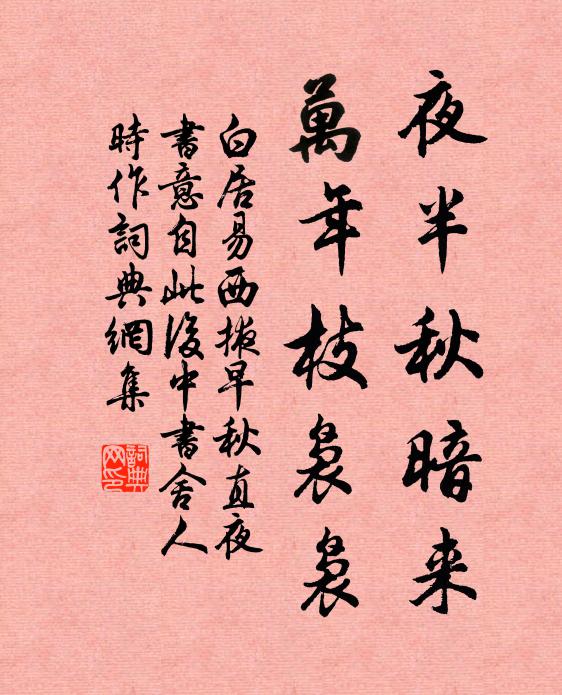 夜半秋暗来
萬年枝裊裊
白居易西掖早秋直夜
書意自此後中書舍人
時作詞典網集
詞典
网印